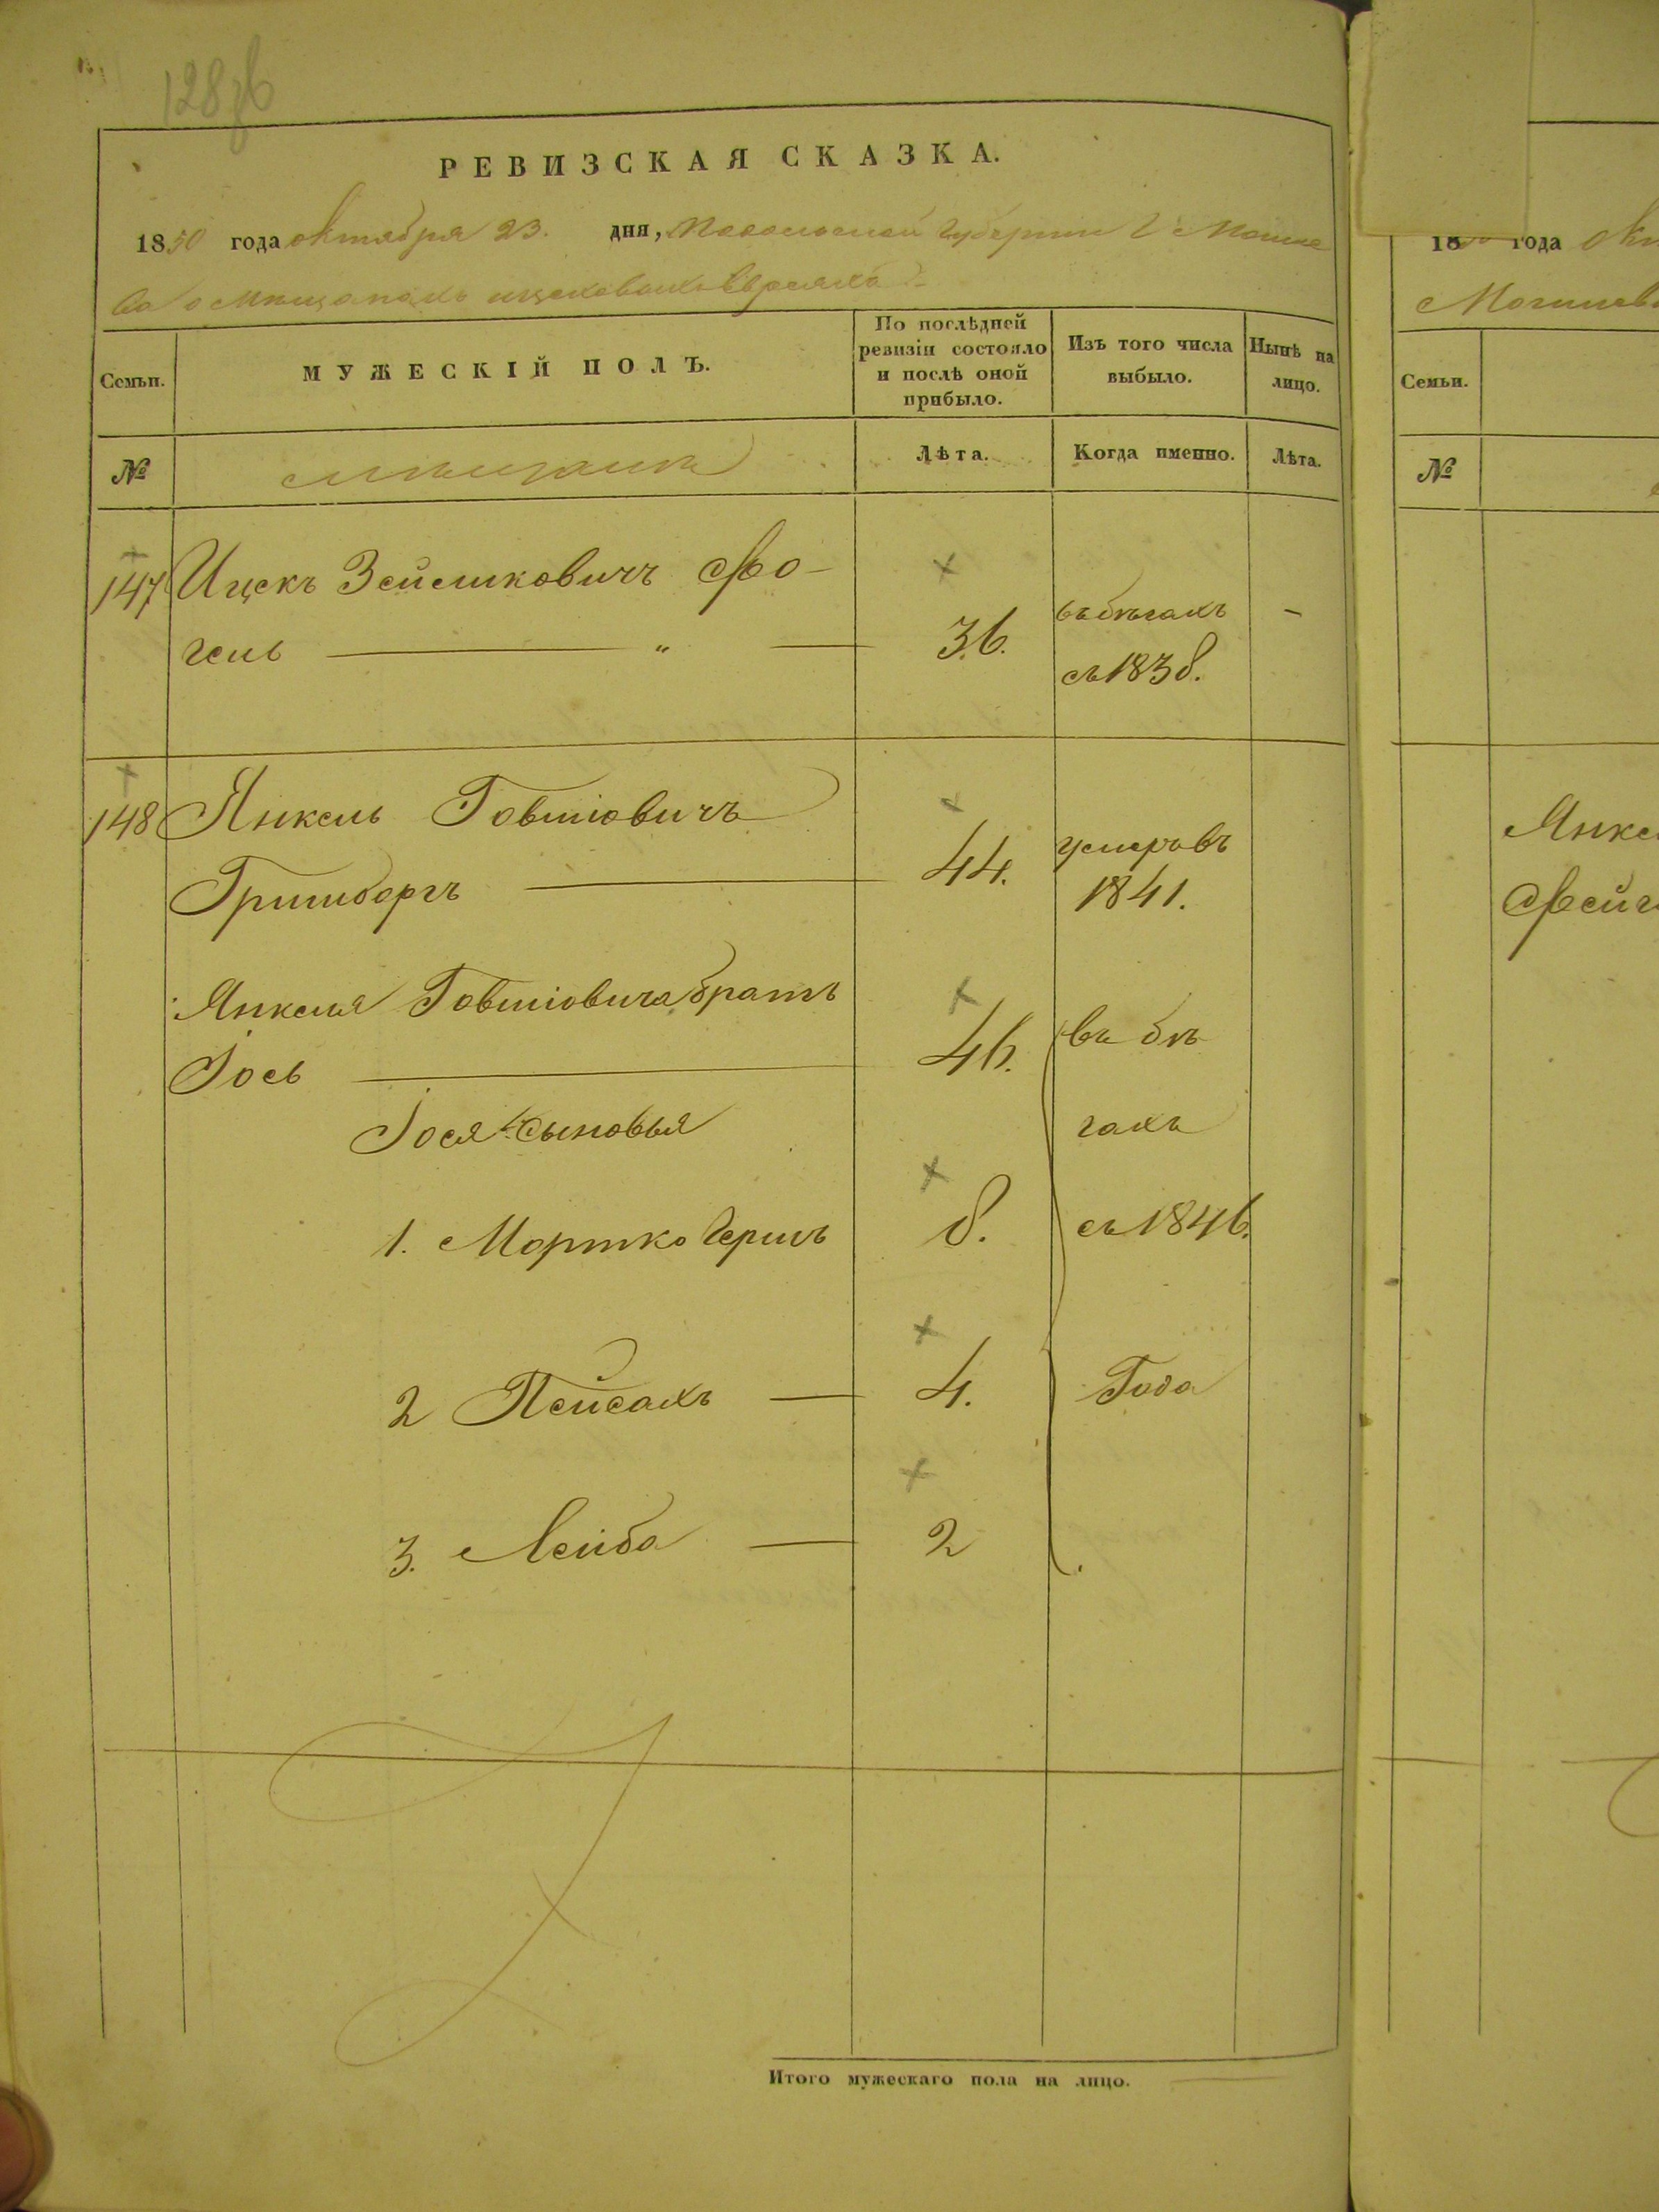 128 зв
РЕВИЗСКАЯ СКАЗКА.
1850 года октября 23. дня, Подольской Губернии Г Могиле
ва о Мещанахъ Евреяхъ
Семьи.
МУЖЕСКІЙ ПОЛЪ.
По послѣдней ревизіи состояло и послѣ оной прибыло.
Изъ того числа выбыло.
Нынѣ на лицо.
№
мещане
Лѣта.
Когда именно.
Лѣта.
147 Ицекъ Зейликовичъ Фо-
гель — " — 36. въ бѣгахъ —
съ 1838.
148 Янкель Говшіовичъ
Гринбергъ — 44. умеръ въ
1841.
Янкеля Говшіовича братъ
Іось — 46. въ бѣ
Іося сыновья гахъ
1. Мортко Гершъ 8. съ 1846.
2 Пейсахъ — 4. Года
3. Лейба — 2
Итого мужескаго пола на лицо.
18 года
Могилев
Семьи.
№
Янке
Фейг